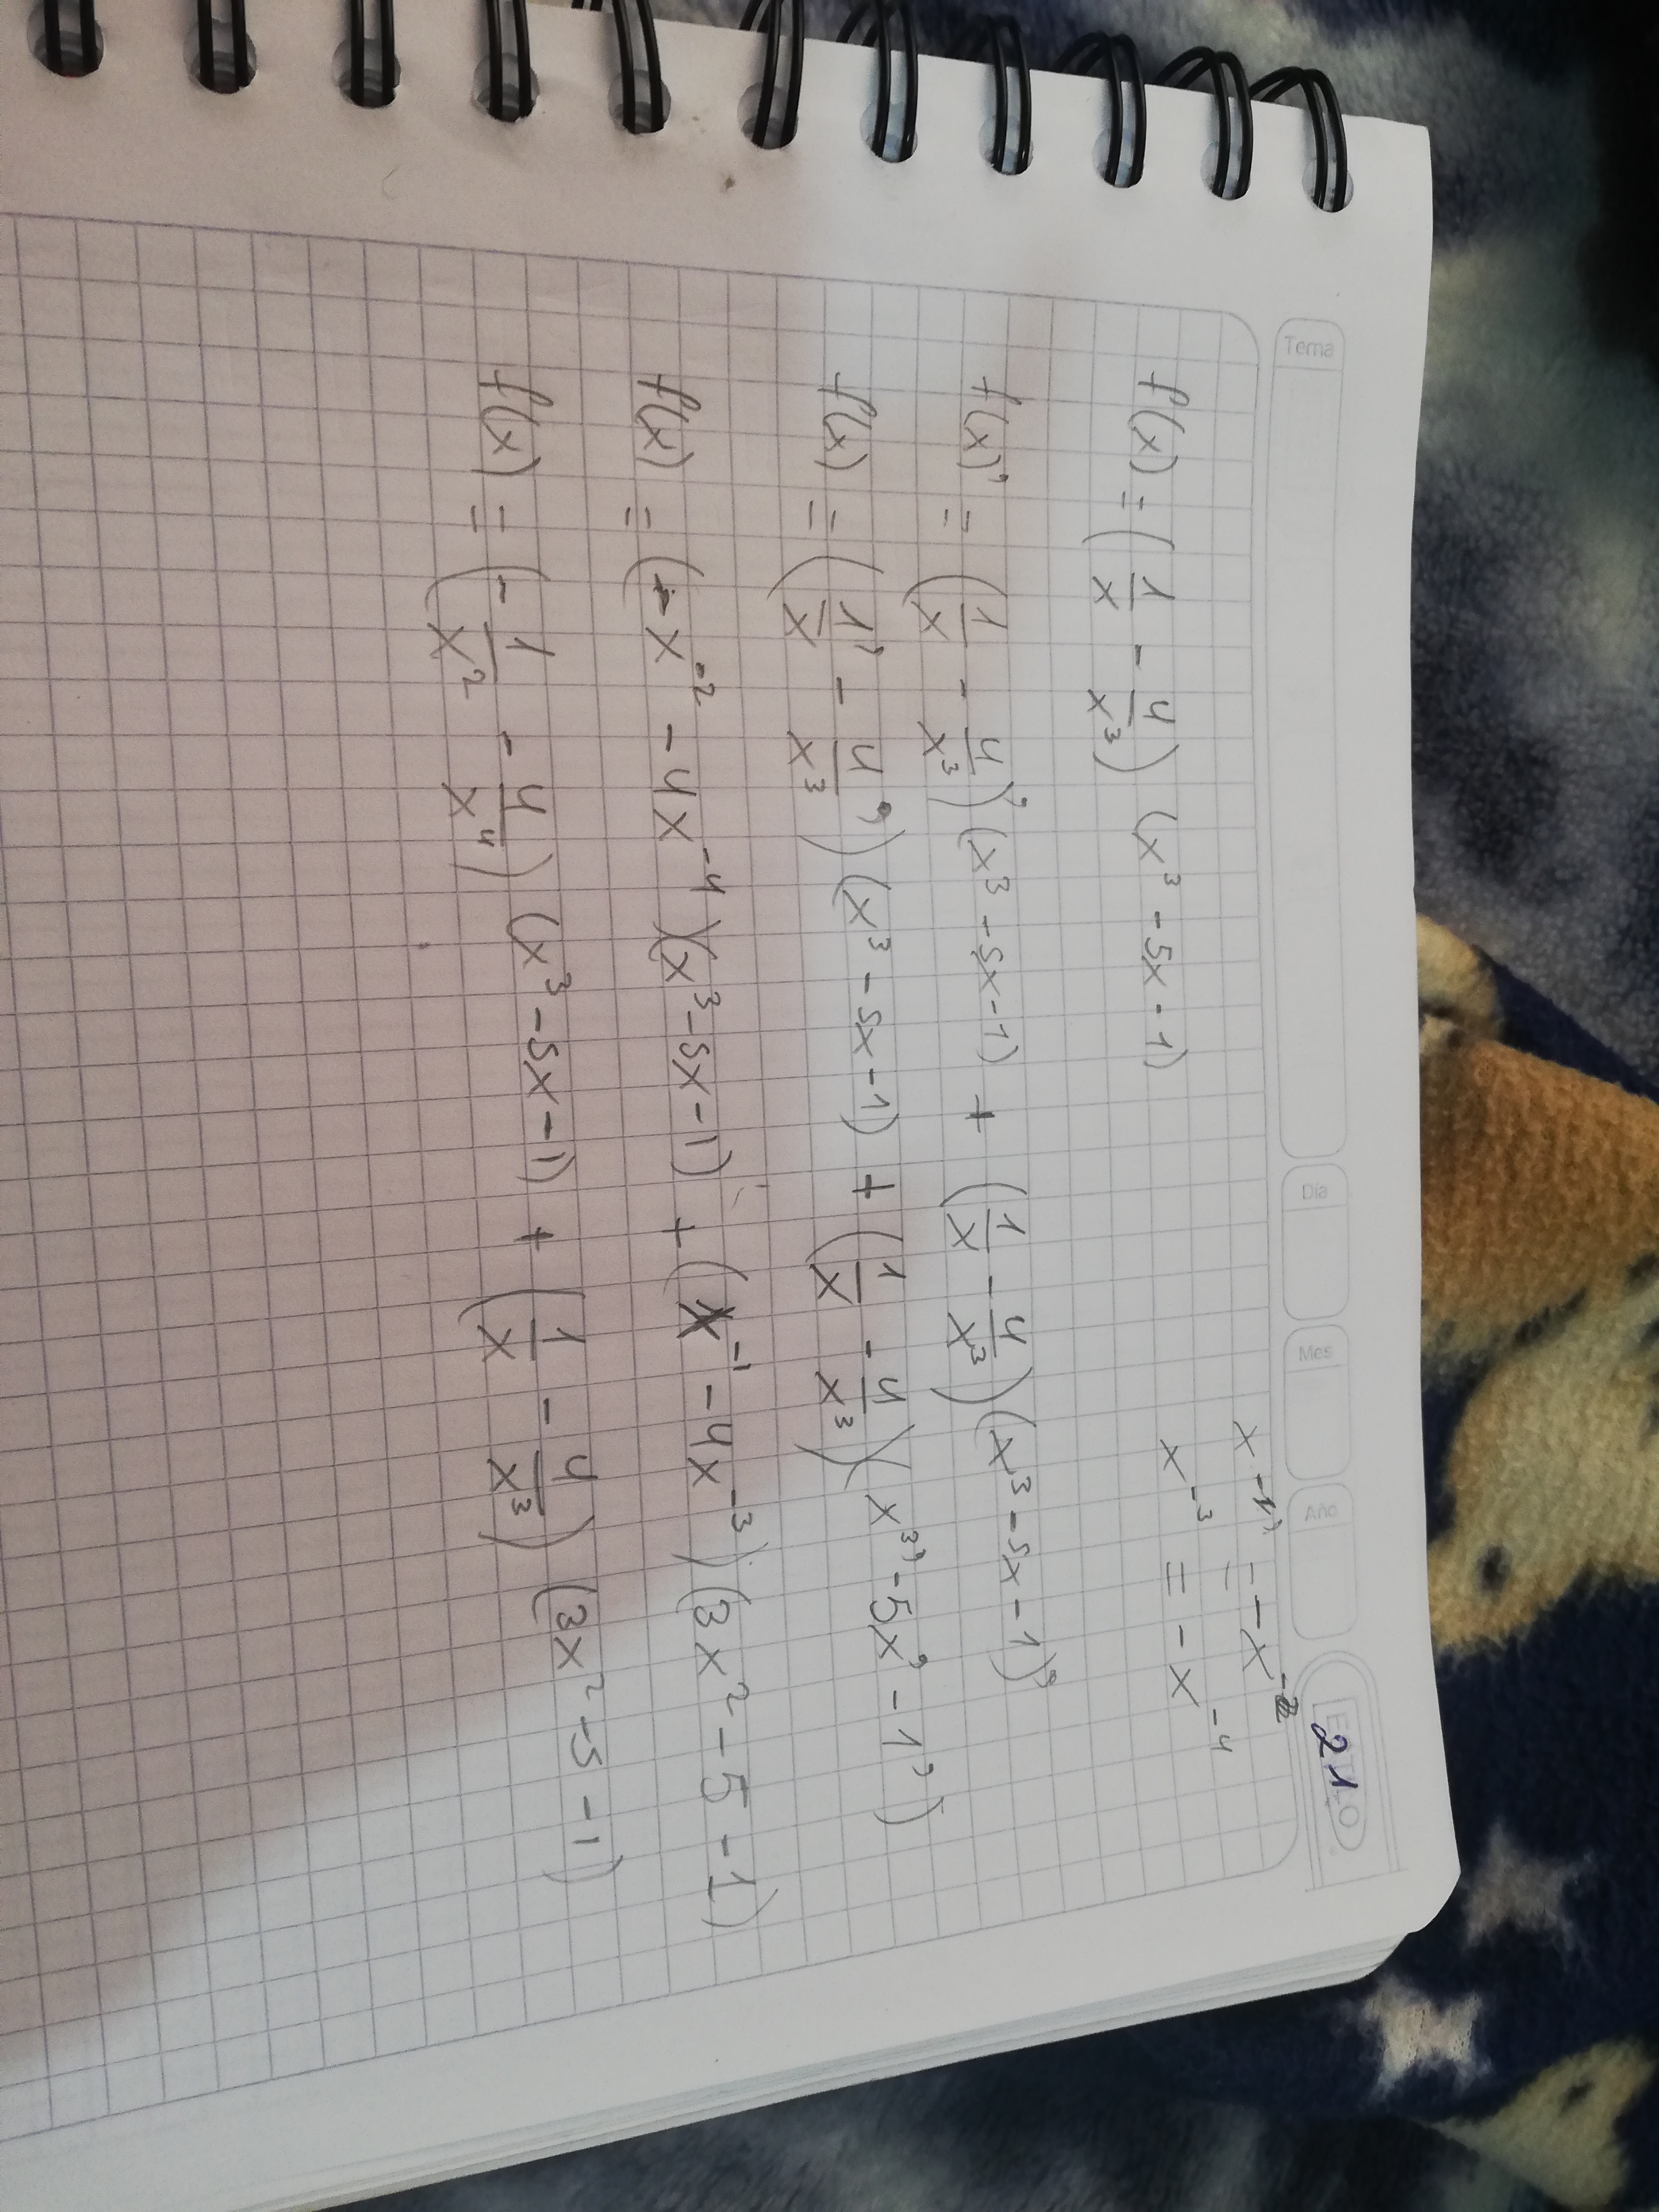 Tema Día Mes Año 21
x⁻¹' = -x⁻²
x⁻³ = -x⁻⁴
f(x) = (1/x - 4/x³) (x³ - 5x - 1)
f(x)' = (1/x - 4/x³)' (x³ - 5x - 1) + (1/x - 4/x³)(x³ - 5x - 1)'
f(x) = (1/x' - 4/x³') (x³ - 5x - 1) + (1/x - 4/x³)(x³' - 5x' - 1')
f(x) = (-x⁻² - 4x⁻⁴)(x³ - 5x - 1) + (x⁻¹ - 4x⁻³)(3x² - 5 - 1)
f(x) = (-1/x² - 4/x⁴) (x³ - 5x - 1) + (1/x - 4/x³) (3x² - 5 - 1)